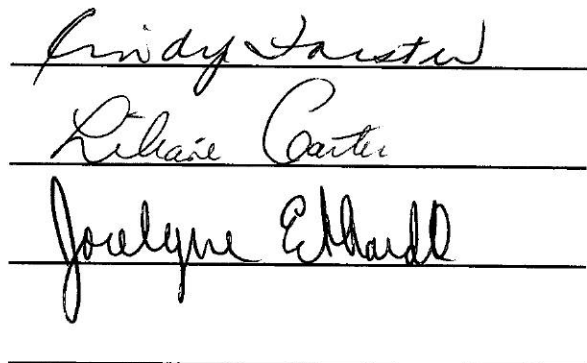 Cindy Forster
Liliane Carter
Jocelyne